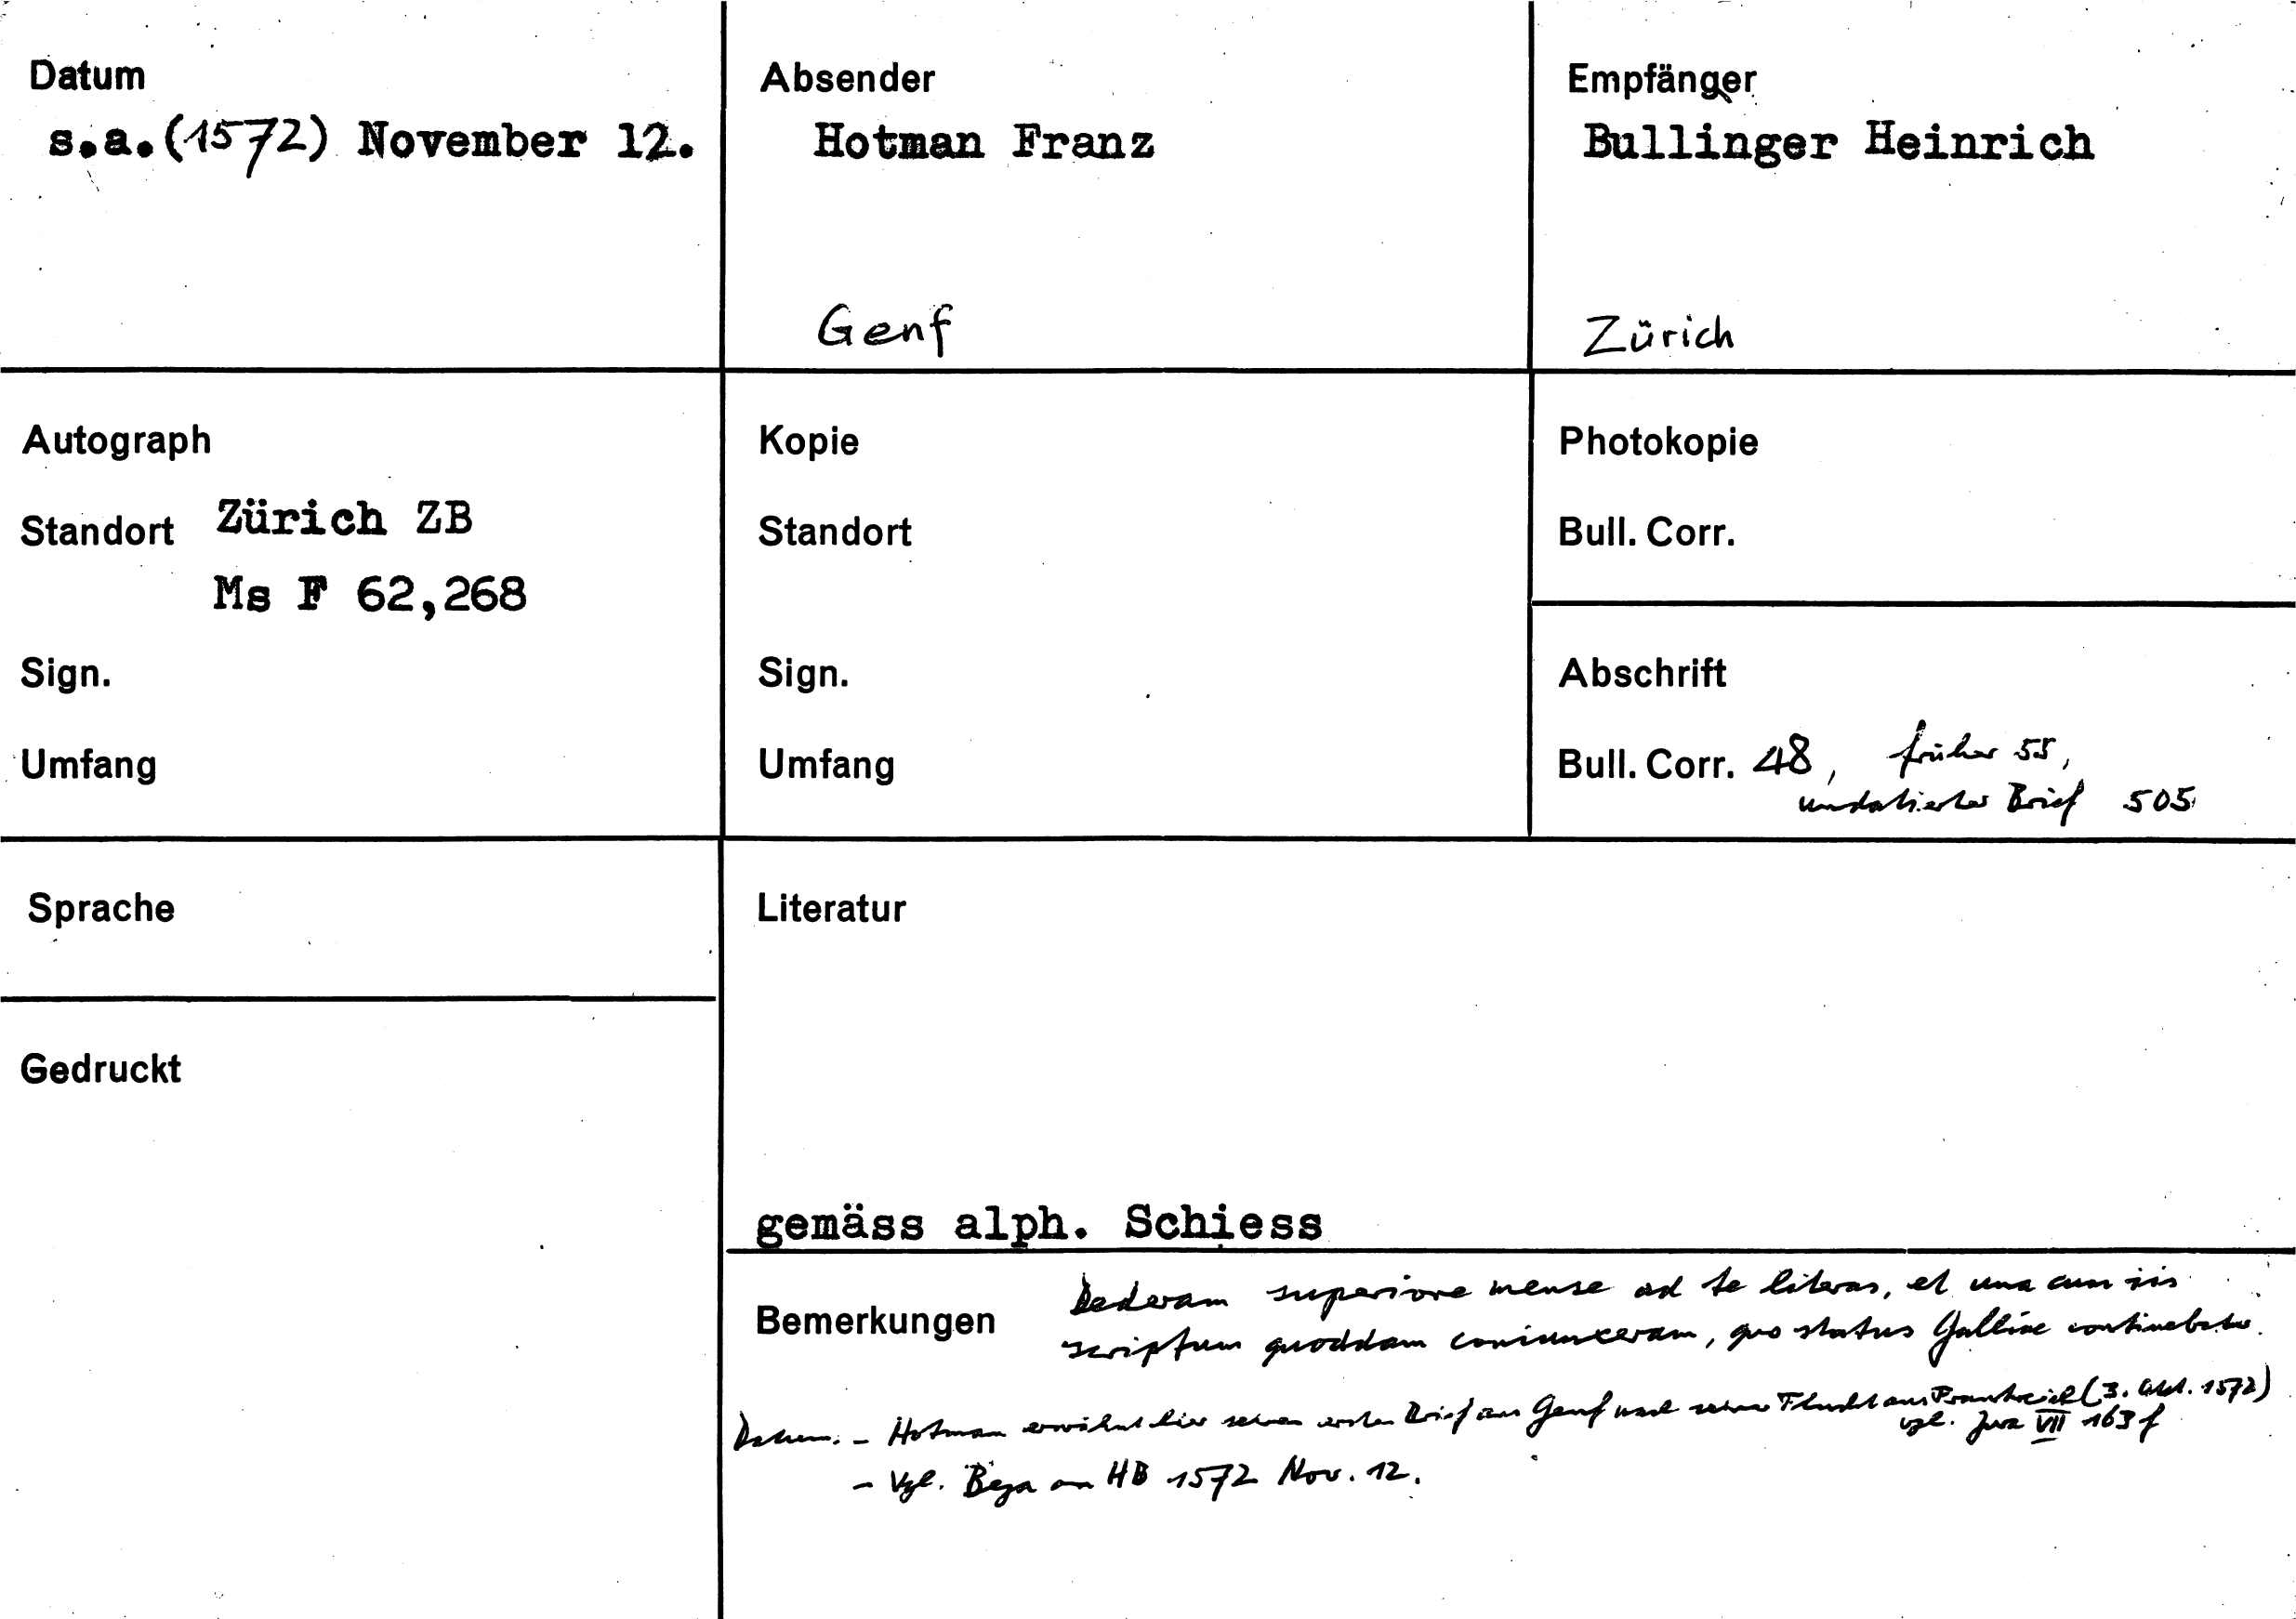 Datum
s.a.(1572) November 12.
Absender
Hotman Franz
Genf
Empfänger
Bullinger Heinrich
Zürich
Autograph
Standort Zürich ZB
Ms F 62,268
Sign.
Umfang
Kopie
Standort
Sign.
Umfang
Photokopie
Bull. Corr.
Abschrift
Bull. Corr. 48, früher 55,
undatierter Brief 505
Sprache
Gedruckt
Literatur
gemäss alph. Schiess
Bemerkungen
Dederam superiore mense ad te literas, et una cum iis
scriptum quoddam coniunxeram, quo status Galliae continebatur.
Datum. - Hotman erwähnt hier seinen ersten Brief aus Genf nach seiner Flucht aus Frankreich (3. Okt. 1572)
vgl. Jura VII 163f
- Vgl. Beza an HB 1572 Nov. 12.